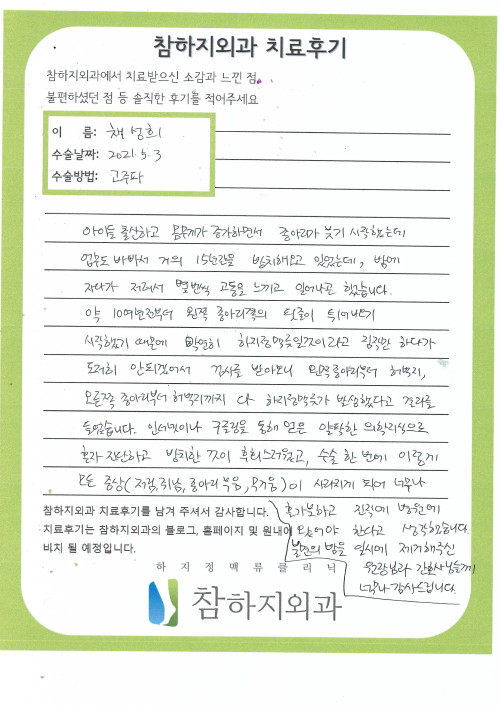 참하지외과 치료후기
참하지외과에서 치료받으신 소감과 느낀 점,
불편하셨던 점 등 솔직한 후기를 적어주세요
이 름: 채성희
수술날짜: 2021. 5. 3
수술방법: 고주파
아이들 출산하고 몸무게가 증가하면서 종아리가 붓기 시작했는데
업무도 바빠서 거의 15년간을 방치해오고 있었는데, 밤에
자다가 저려서 몇번씩 고통을 느끼고 일어나곤 했습니다.
약 10여년전부터 왼쪽 종아리쪽의 핏줄이 튀어나오기
시작했기 때문에 막연히 하지정맥류일것이라고 짐작만 하다가
도저히 안되겠어서 검사를 받아보니 왼쪽종아리부터 허벅지,
오른쪽 종아리부터 허벅지까지 다 하지정맥류가 발생했다고 결과를
들었습니다. 인터넷이나 구글링을 통해 얻은 얄팍한 의학지식으로
혼자 진단하고 방치한 것이 후회스러웠고, 수술 한 번에 이렇게
모든 증상(저림, 쥐남, 종아리 부음, 무거움)이 사라지게 되어 너무나
홀가분하고 진작에 병원에
왔어야 한다고 생각했습니다.
불면의 밤을 일시에 제거해주신
원장님과 간호사님들께
너무나 감사드립니다.
참하지외과 치료후기를 남겨 주셔서 감사합니다.
치료후기는 참하지외과의 블로그, 홈페이지 및 원내에
비치 될 예정입니다.
하지정맥류클리닉
참하지외과